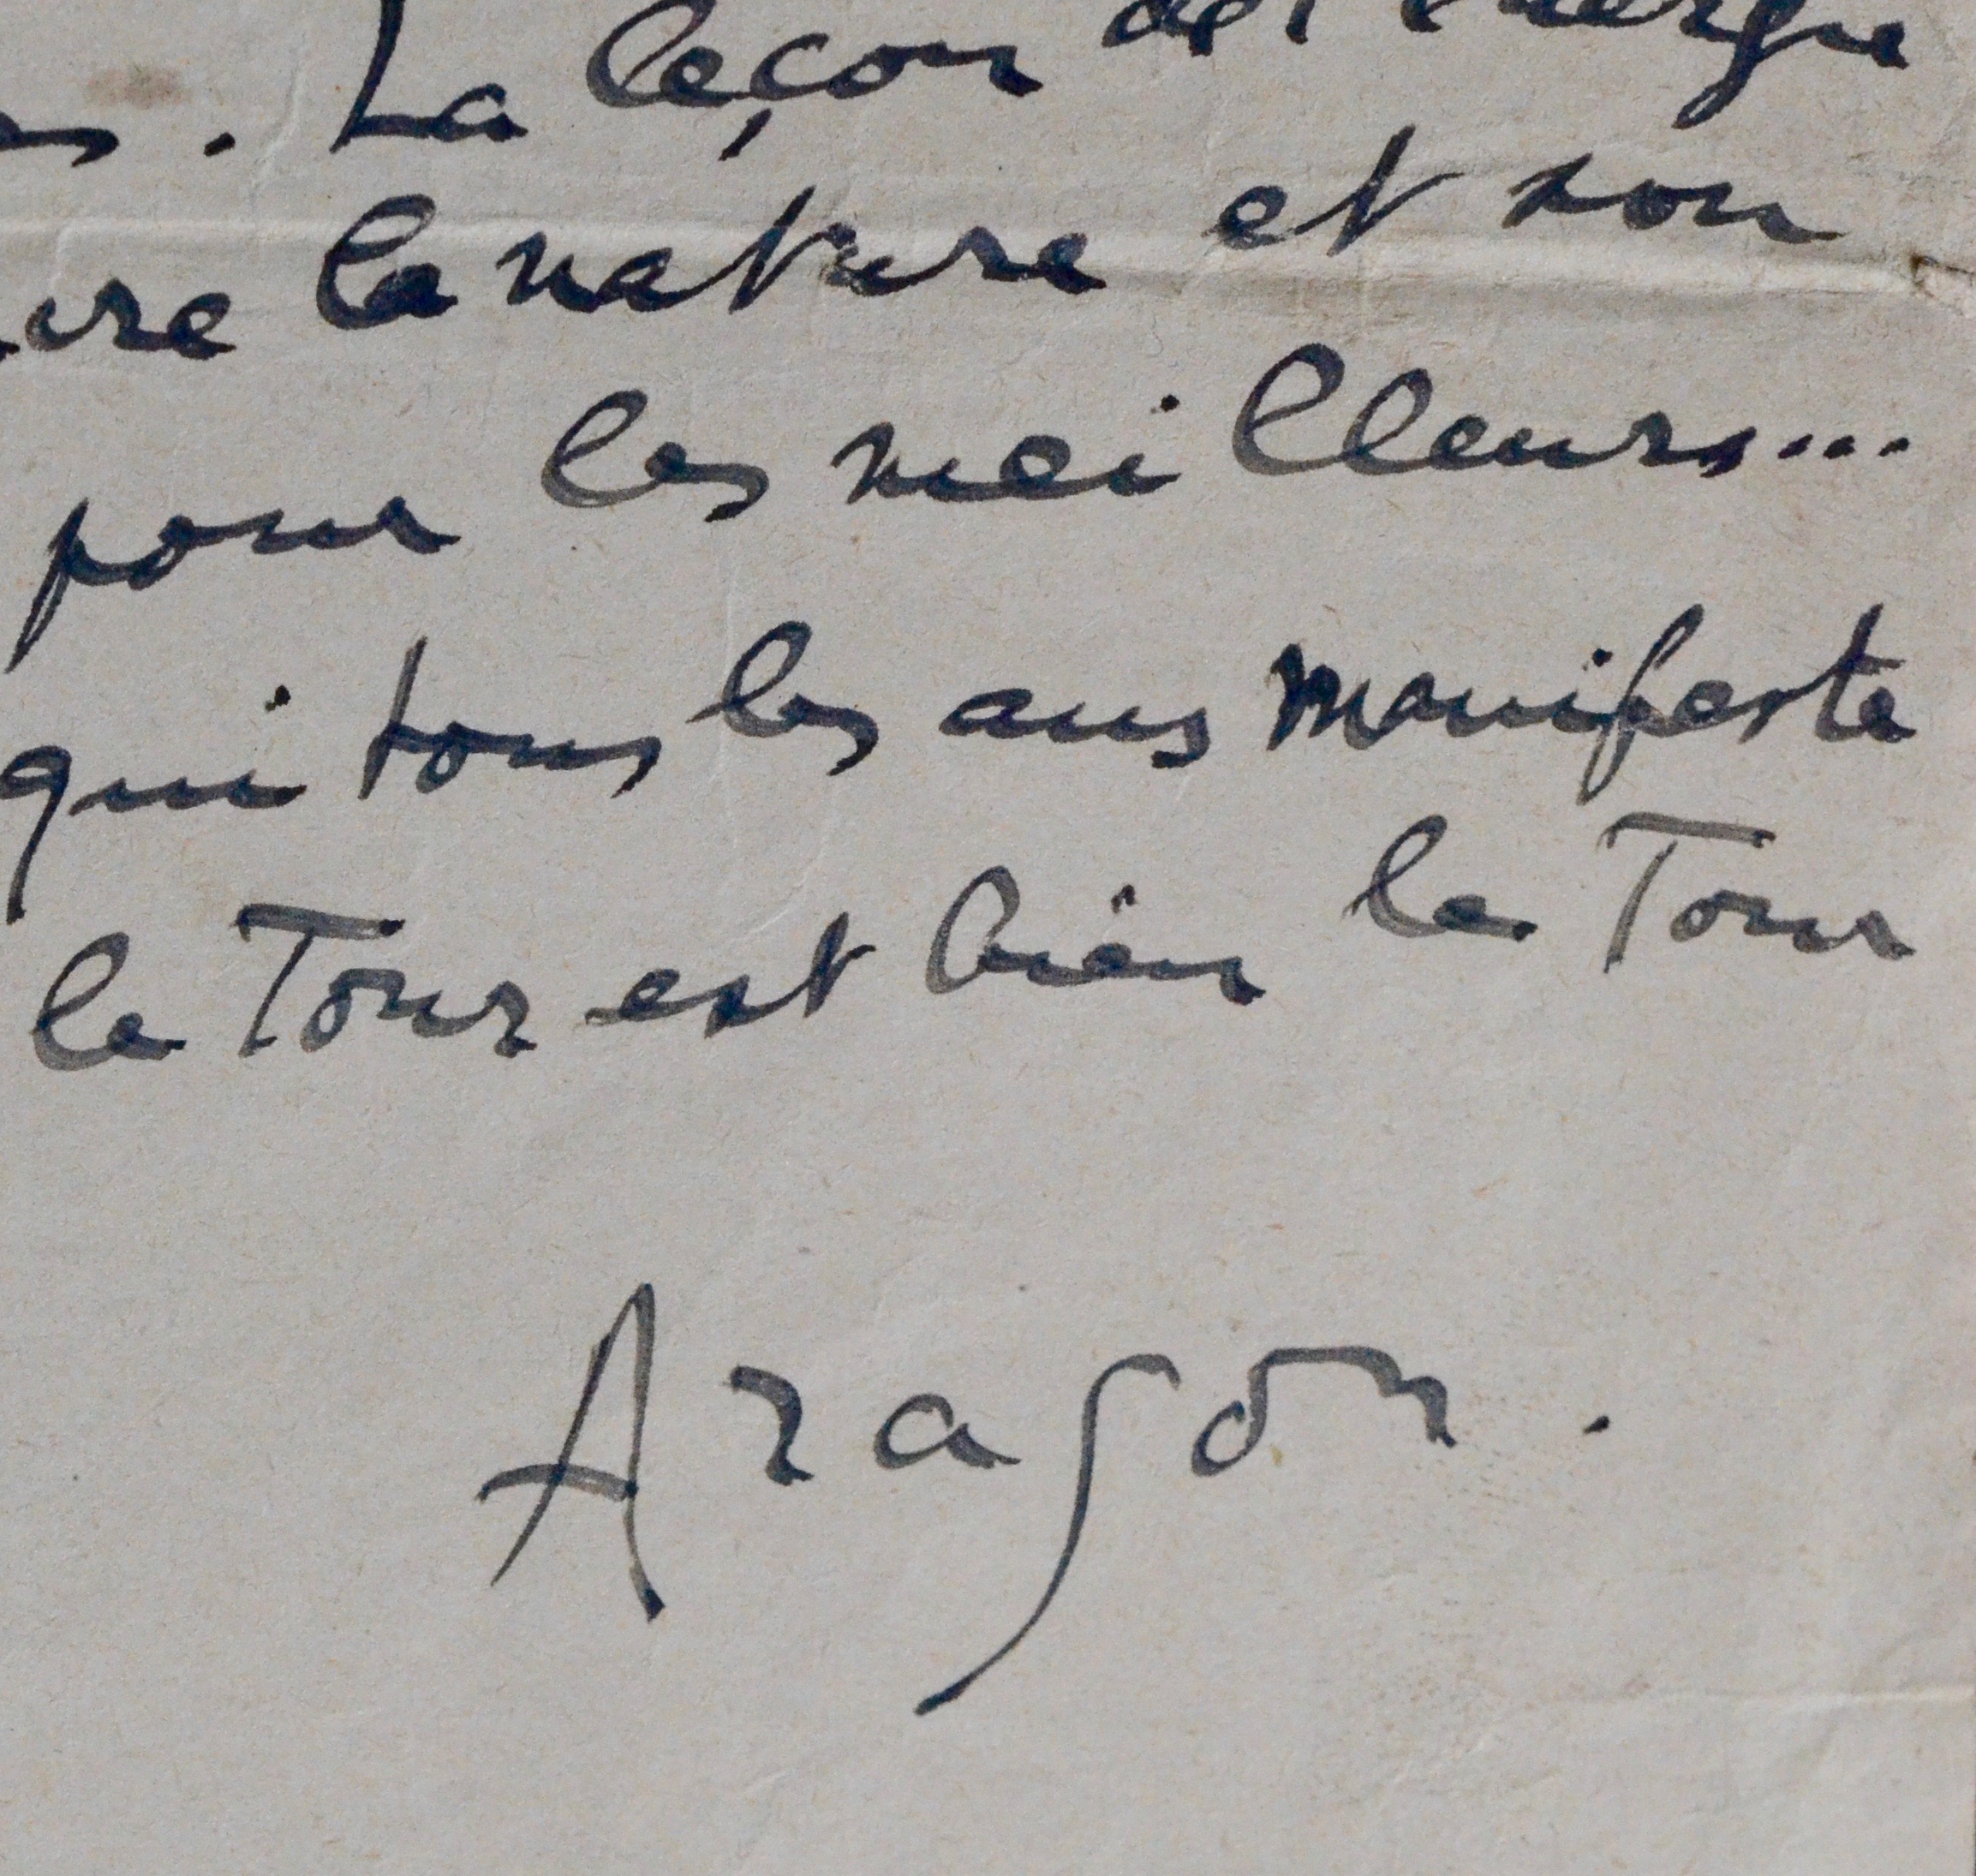 . La leçon de l'énergie
la nature et son
pour les meilleurs...
qui tous les ans manifeste
le Tour est bien le Tour
Aragon.